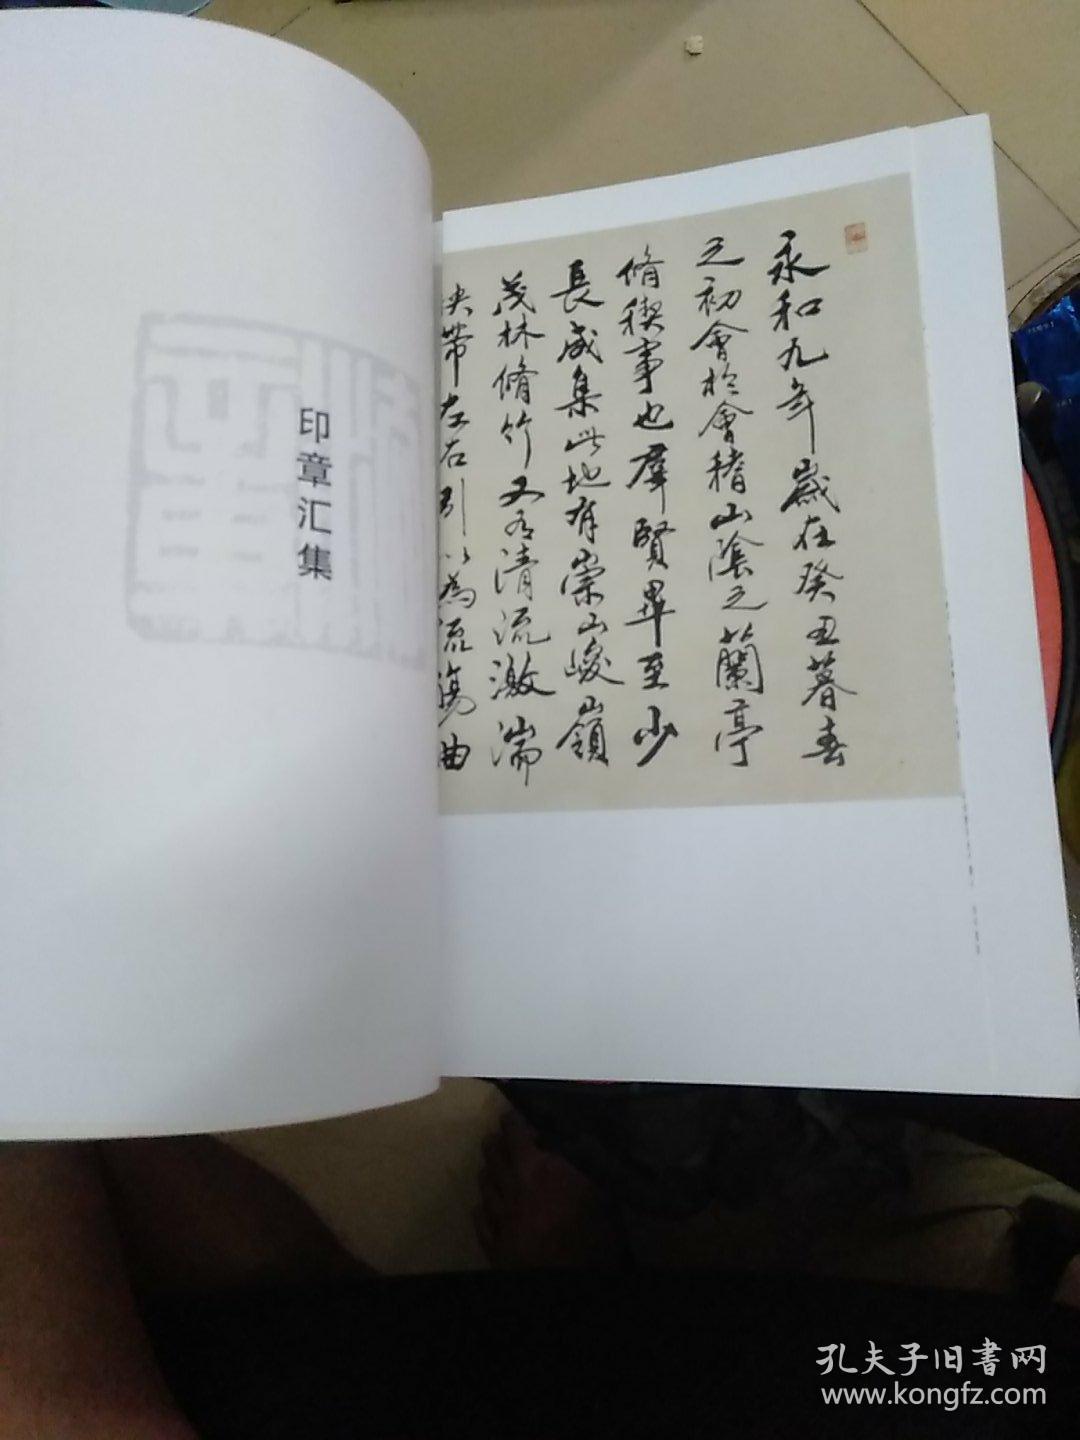 印章汇集
永和九年歲在癸丑暮春
之初會於會稽山陰之蘭亭
脩稧事也羣賢畢至少
長咸集此地有崇山峻嶺
茂林脩竹又有清流激湍
映帶左右引以為流觴曲
孔夫子旧書网
www.kongfz.com